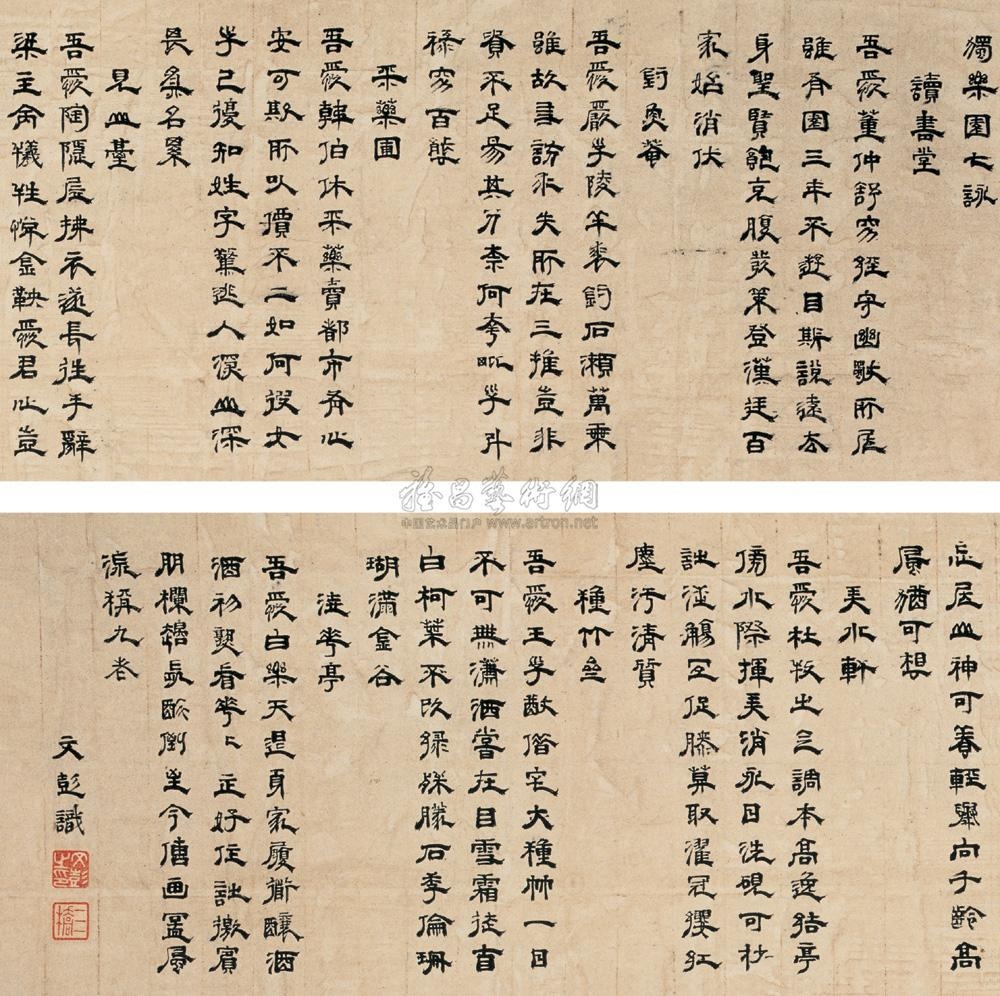 獨樂園七詠
讀書堂
吾愛董仲舒窮經守幽獨所居
雖有園三年不遊目斯說遠去
耳聖賢飽充腹發策登漢廷百
家始消伏
釣魚菴
吾愛嚴子陵羊裘釣石瀨萬乘
雖故訪求失所在三推豈非
貴不足易其介奈何夸毗子斗
祿窮百態
采藥圃
吾愛韓伯休采藥賣都市有心
安可欺所以價不二如何彼女
子已復知姓字驚逃入深山深
畏為名累
見山臺
吾愛陶隱居拂衣遂長往手辭
梁主命犧牲憚金鞅愛君心豈
忘居山神可養輕舉向千齡高
風猶可想
弄水軒
吾愛杜牧之氣調本高逸結亭
傍水際揮弄消永日洗硯可抄
詩泛觴宜促膝莫取濯冠纓紅
塵汚清質
種竹齋
吾愛王子猷借宅亦種竹一日
不可無瀟洒常在目雪霜徒自
白柯葉不改綠殊勝石季倫珊
瑚滿金谷
澆花亭
吾愛白樂天退身家履道釀酒
酒初熟看花〻正好作詩邀賓
朋欄邊長醉倒至今傳画圖風
流稱九老
文彭識
文彭之印
三橋
雅昌藝術網
中国艺术品门户 www.artron.net